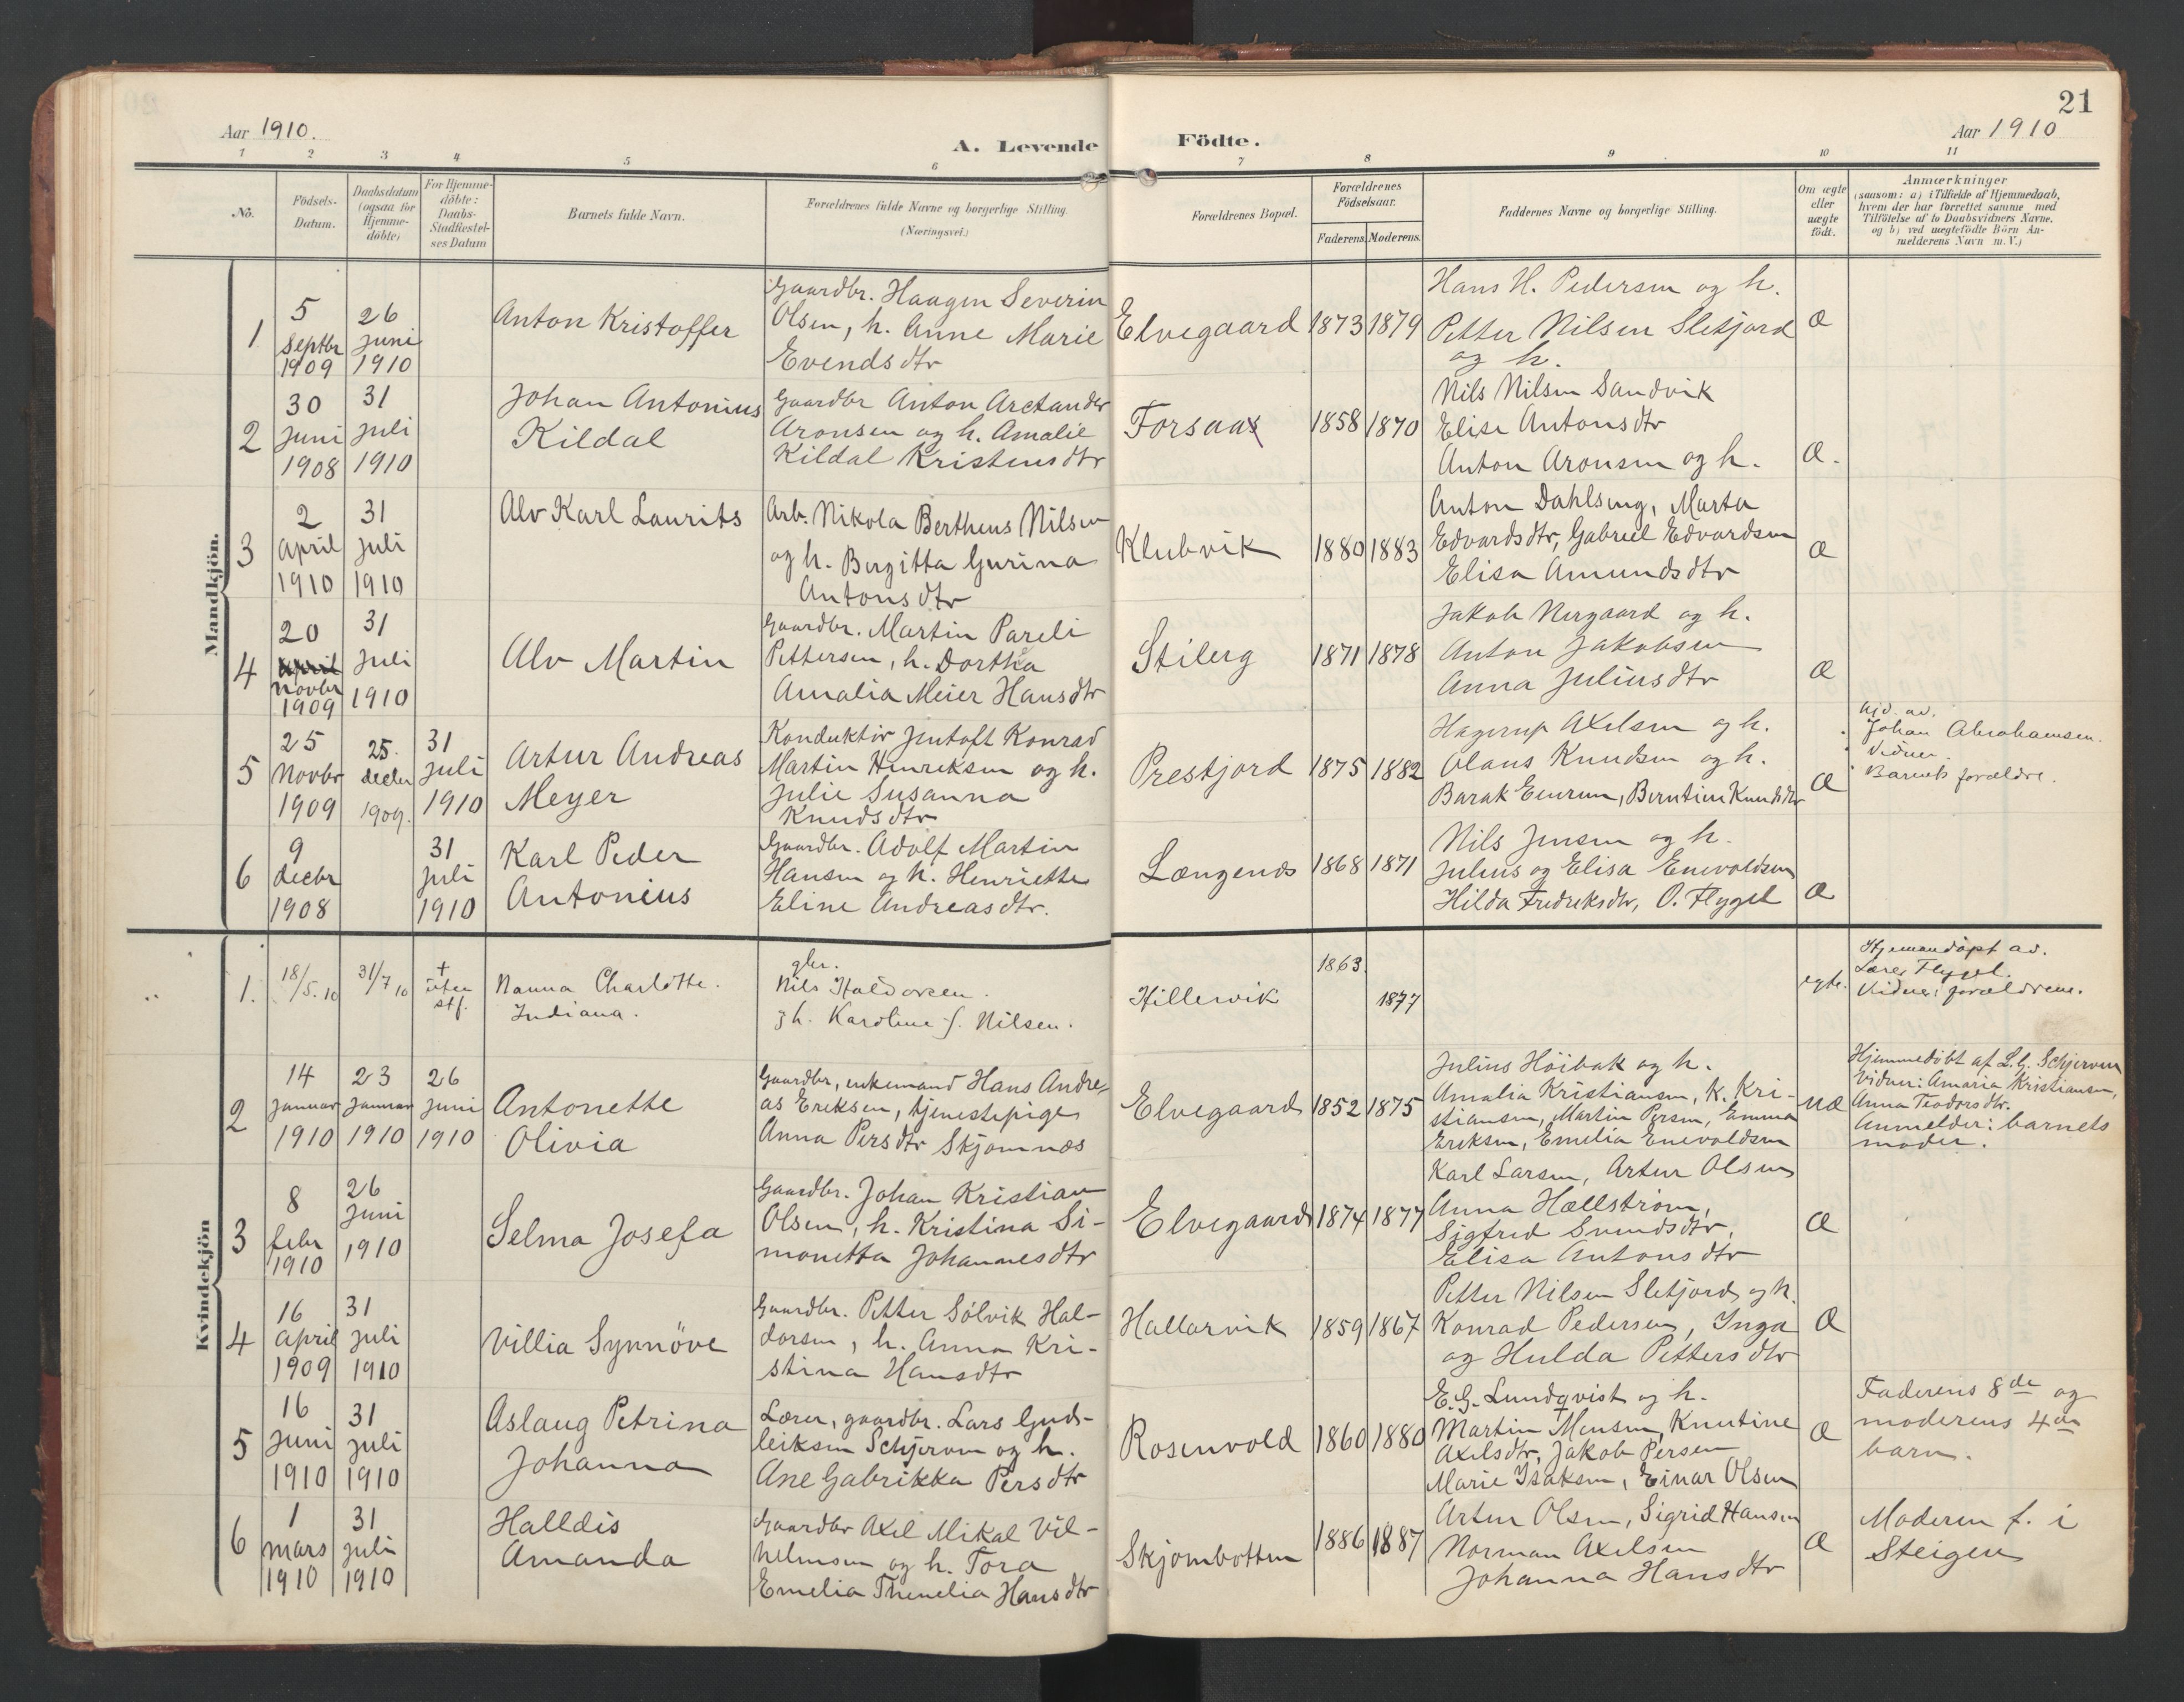 21
Aar 1910.
A. Levende Födte.
Aar 1910
1 2 3 4 5 6 7 8 9 10 11
No.
Födsels-Datum.
Daabsdatum (ogsaa for Hjemme-döbte)
For Hjemme-döbte: Daabs-Stadfæstel-ses Datum
Barnets fulde Navn.
Forældrenes fulde Navne og borgerlige Stilling.
(Næringsvei.)
Forældrenes Bopæl.
Forældrenes Födselsaar.
Faderens. Moderens.
Faddernes Navne og borgerlige Stilling.
Om ægte eller uægte födt.
Anmærkninger
(saasom: a) i Tilfælde af Hjemmedaab,
hvem der har forrettet samme med
Tilföielse af to Daabsvidners Navne.
og b) ved uægtefödte Börn An-
melderens Navn m. V.)
Mandkjön.
1
5 Septbr 1909
26 juni 1910
Anton Kristoffer
Gaardbr. Haagen Severin
Olsen, h. Anne Marie
Evendsdtr
Elvegaard
1873 1879
Hans H. Pedersen og h.
Petter Nilsen Sletjord
og h.
Æ
2
30 juni 1908
31 juli 1910
Johan Antonius
Kildal
Gaardbr Anton Arctander
Aronsen og h. Amalie
Kildal Kristensdtr
Forsaa
1858 1870
Nils Nilsen Sandvik
Elise Antonsdtr
Anton Aronsen og h.
Æ.
3
2 april 1910
31 juli 1910
Alv Karl Laurits
Arb. Nikola Bertheus Nilsen
og h. Bergitta Gurina
Antonsdtr
Klubvik
1880 1883
Anton Dahlseng, Marta
Edvardsdtr, Gabriel Edvardsen
Elisa Amundsdtr
Æ
4
20 april novbr 1909
31 juli 1910
Alv Martin
Gaardbr. Martin Pareli
Pettersen, h. Dorthea
Amalia Meier Hansdtr
Stiberg
1871 1878
Jakob Nergaard og h.
Anton Jakobsen
Anna Juliusdtr
Æ
5
25 Novbr 1909
25. decbr 1909.
31 juli 1910
Artur Andreas
Meyer
Konduktör Jentoft Konrad
Martin Henriksen og h.
Julie Susanna
Knudsdtr
Prestjord
1875 1882
Hagerup Axelsen og h.
Olaus Knudsen og h.
Barak Enurun, Berntine Knudsdtr
Æ
Hjd. av.
Johan Abrahamsen.
Vidner
Barnets forældre.
6
9 decbr 1908
31 juli 1910
Karl Peder
Antonius
Gaardbr. Adolf Martin
Hansen og h. Henriette
Eline Andreasdtr.
Længenes
1868 1871
Nils Jensen og h.
Julius og Elisa Enevoldsen
Hilda Fredriksdtr, O. Flygel
Æ
Kvindekjön
1.
18/5.10
31/7 10
+ uten stf.
Nanna Charlotte.
Indiana.
gbr.
Nils Haldorsen.
g h. Karoline f. Nilsen.
Hillervik
1863.
1877
egte.
Hjemmedöpt av.
Lærer Flygel.
Vidner: forældrene.
2
14 januar 1910
23 januar 1910
26 juni 1910
Antonette
Olivia
Gaardbr, enkemand Hans Andre-
as Eriksen, tjenestepige
Anna Persdtr Skjomnæs
Elvegaard
1852 1875
Julius Höibak og h.
Amalia Kristiansen, K. Kri-
stiansen, Martin Persen, Emma
Eriksen, Emelia Enevoldsen
UÆ
Hjemmedöbt af L. G. Schjerven
Vidner: Amaria Kristiansen,
Anna Teodorsdtr.
Anmelder: barnets
moder.
3
8 febr 1910
26 juni 1910
Selma Josefa
Gaardbr. Johan Kristian
Olsen, h. Kristina Si-
monetta Johannesdtr
Elvegaard
1874 1877
Karl Larsen, Artur Olsen
Anna Hællström,
Sigfrid Svendsdtr,
Elisa Antonsdtr
Æ
4
16 april 1909
31 juli 1910
Villia Synnöve
Gaardbr. Petter Sölvik Hal-
dorsen, h. Anna Kri-
stina Hansdtr
Hallarvik
1859 1867
Petter Nilsen Sletjord og h.
Konrad Pedersen, Inga
og Hulda Pettersdtr
Æ
5
16 juni 1910
31 juli 1910
Aslaug Petrina
Johanna
Lærer, gaardbr. Lars Guds-
leiksen Schjerven og h.
Ane Gabrikka Persdtr
Rosenvold
1860 1880
E. G. Lundqvist og h.
Martin Monsen, Knutine
Axelsdtr, Jakob Persen
Marie Isaksen, Einar Olsen
Æ
Faderens 8de og
moderens 4de
barn.
6
1 mars 1910
31 juli 1910
Halldis
Amanda
Gaardbr Axel Mikal Vil-
helmsen og h. Tora
Emelia Thenelia Hansdtr
Skjombotten
1886 1887
Artur Olsen, Sigrid Hansen
Norman Axelsen
Johanna Hansdtr
Æ
Moderen f. i
Steigen